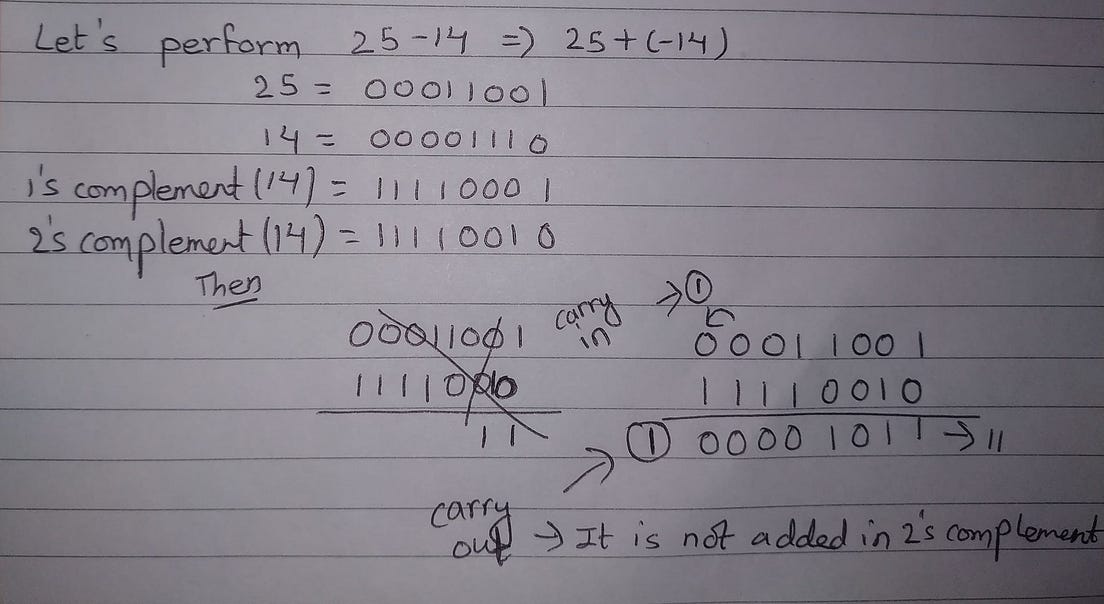 Let's perform 25-14 => 25+(-14)
25 = 00011001
14 = 00001110
1's complement (14) = 11110001
2's complement (14) = 11110010
Then
carry in → 1
00011001
11110010
1 00001011 → 11
carry out → It is not added in 2's complement